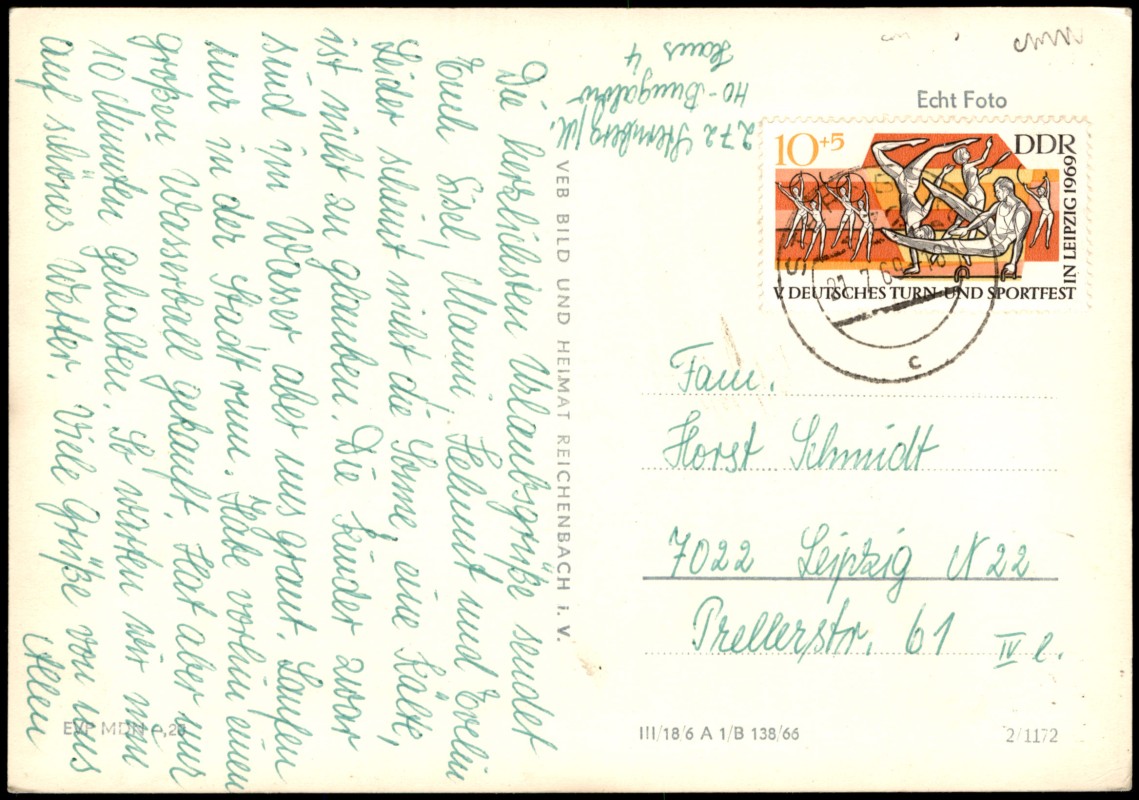 272 Sternberg/M.
HO-Bungalow
Haus 4
Die herzlichsten Urlaubsgrüße sendet
Euch Gisel, Manni, Helmut und Evelin
Leider scheint nicht die Sonne, eine Kälte,
ist nicht zu glauben. Die Kinder zwar
sind im Wasser aber uns graut. Laufen
nur in der Stadt rum. Habe vorhin einen
großen Wasserball gekauft. Hat aber nur
10 Minuten gehalten. So warten wir nun
auf schönes Wetter. Viele Grüße von uns
Allen
VEB BILD UND HEIMAT REICHENBACH i. V.
EVP MDN 0,25
Echt Foto
10+5
DDR
V. DEUTSCHES TURN-UND SPORTFEST
IN LEIPZIG 1969
c
Fam.
Horst Schmidt
7022 Leipzig N 22
Prellerstr. 61 IV l.
III/18/6 A 1/B 138/66
2/1172